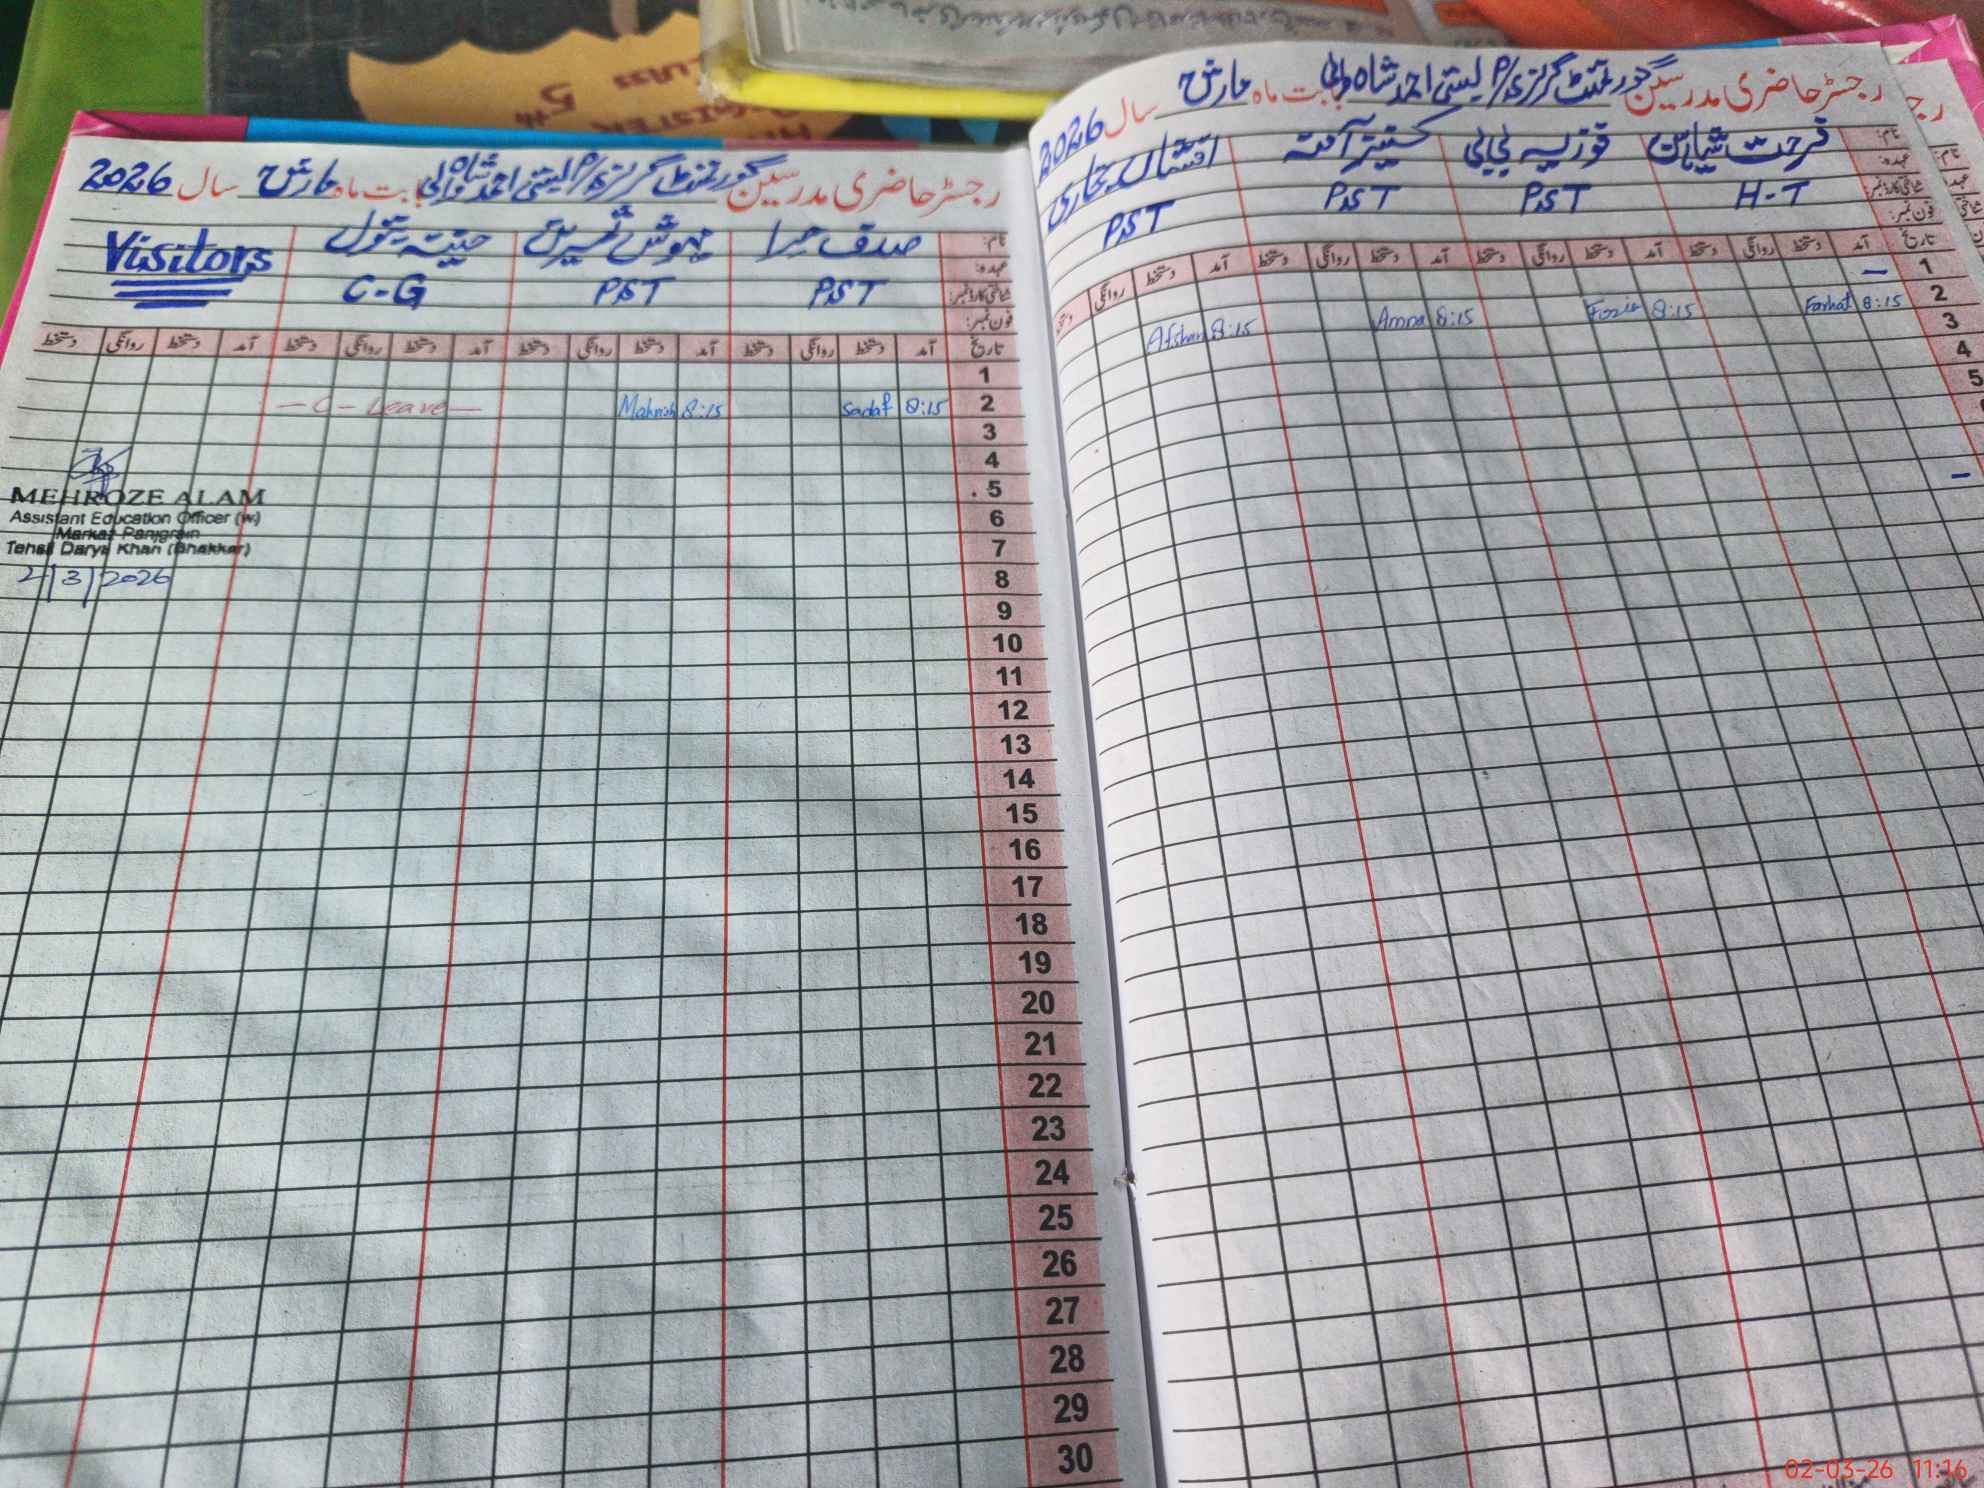 رجسٹر حاضری مدرسین گورنمنٹ گرلز P/S بستی احمد شاہ والی بابت ماہ مارچ سال 2026
نام:
فرحت شہناز
فوزیہ بی بی
عہدہ:
شناختی کارڈ نمبر:
H-T
PST
PST
PST
فون نمبر:
تاریخ
آمد دستخط روانگی دستخط آمد دستخط روانگی دستخط آمد دستخط روانگی دستخط آمد دستخط روانگی دستخط
1 —
2 8:15 Farhat 8:15 Fozia 8:15 Amna 8:15 Afshan
3
4
5
رجسٹر حاضری مدرسین گورنمنٹ گرلز P/S بستی احمد شاہ والی بابت ماہ مارچ سال 2026
نام:
صدف حمیرا
مہوش نسرین
Visitors
عہدہ:
شناختی کارڈ نمبر:
PST
PST
C-G
فون نمبر:
تاریخ
آمد دستخط روانگی دستخط آمد دستخط روانگی دستخط آمد دستخط روانگی دستخط آمد دستخط روانگی دستخط
1
2 8:15 Sadaf 8:15 Mahwish — C - Leave —
3
4
5
6
7
8
9
10
11
12
13
14
15
16
17
18
19
20
21
22
23
24
25
26
27
28
29
30
MEHROZE ALAM
Assistant Education Officer (w)
Markaz Panjgrain
Tehsil Darya Khan (Bhakkar)
2/3/2026
REGISTER
CLASS 5th
02-03-26 11:16